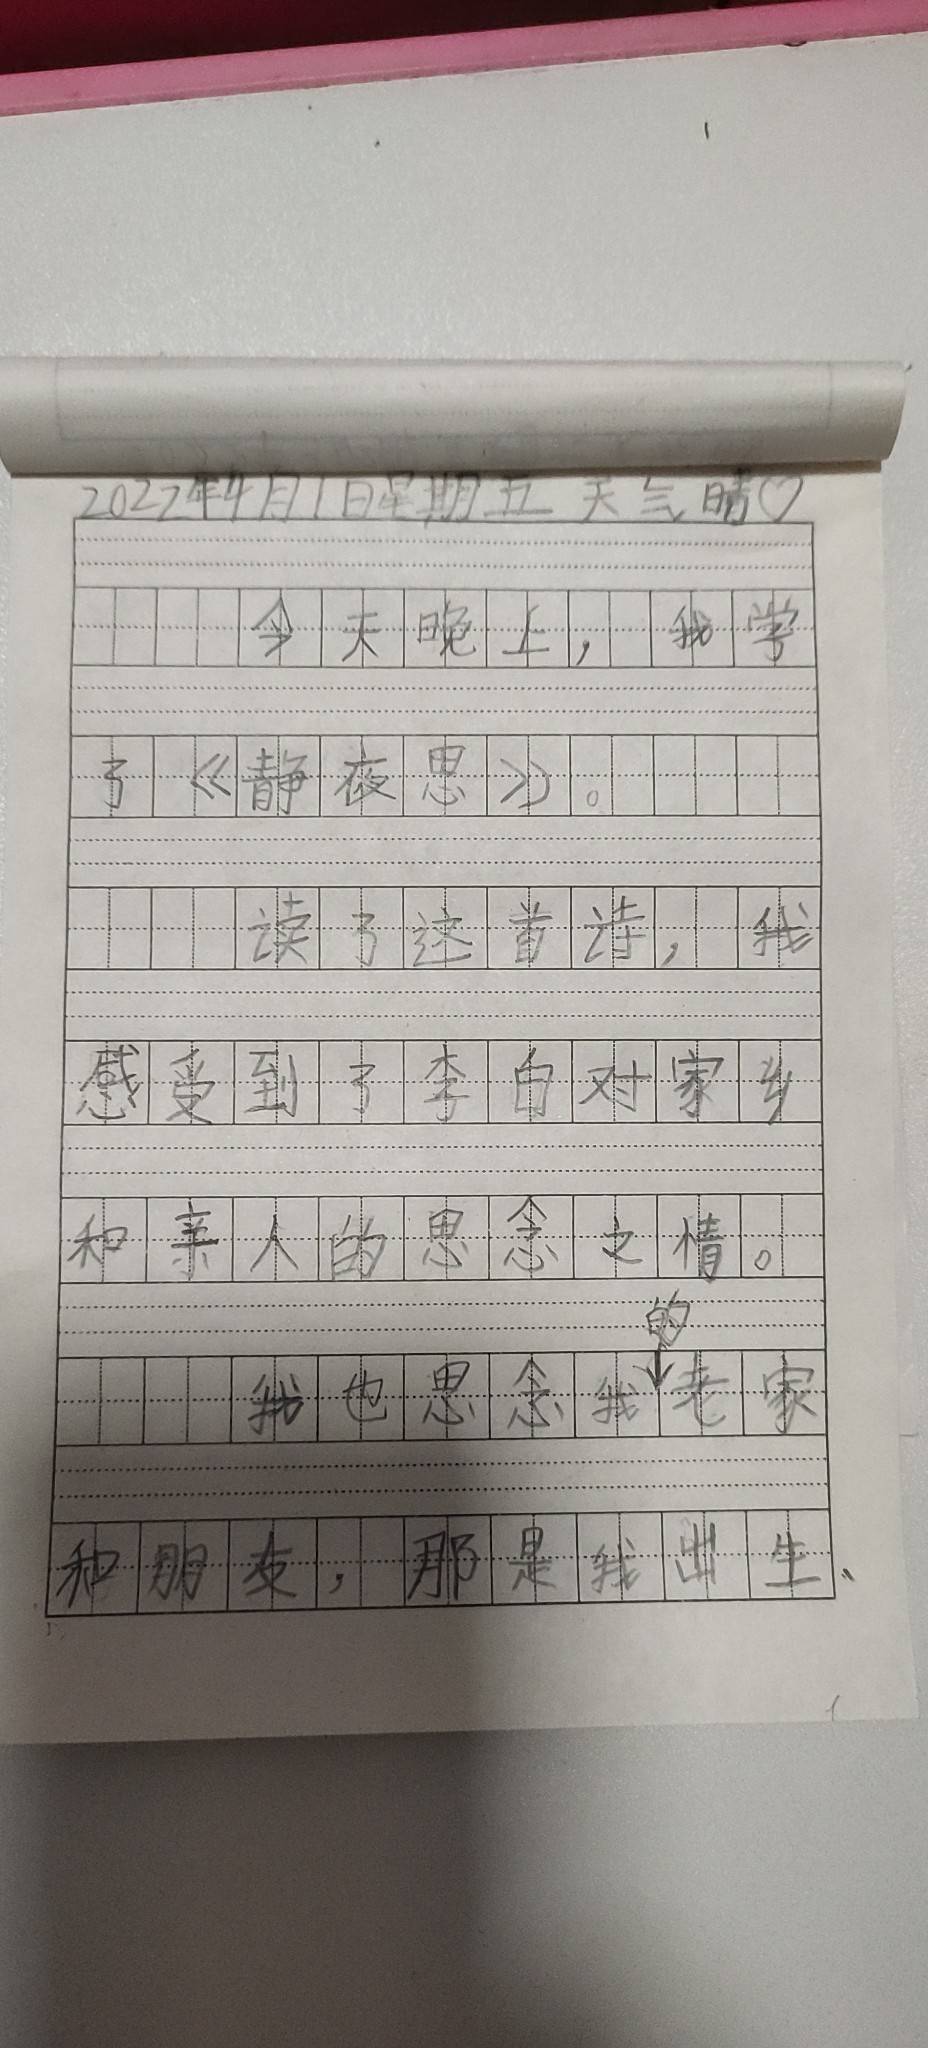 2022年4月1日星期五 天气晴♡
今天晚上，我学
了《静夜思》。
读了这首诗，我
感受到了李白对家乡
和亲人的思念之情。
的
我也思念我老家
和朋友，那是我出生、